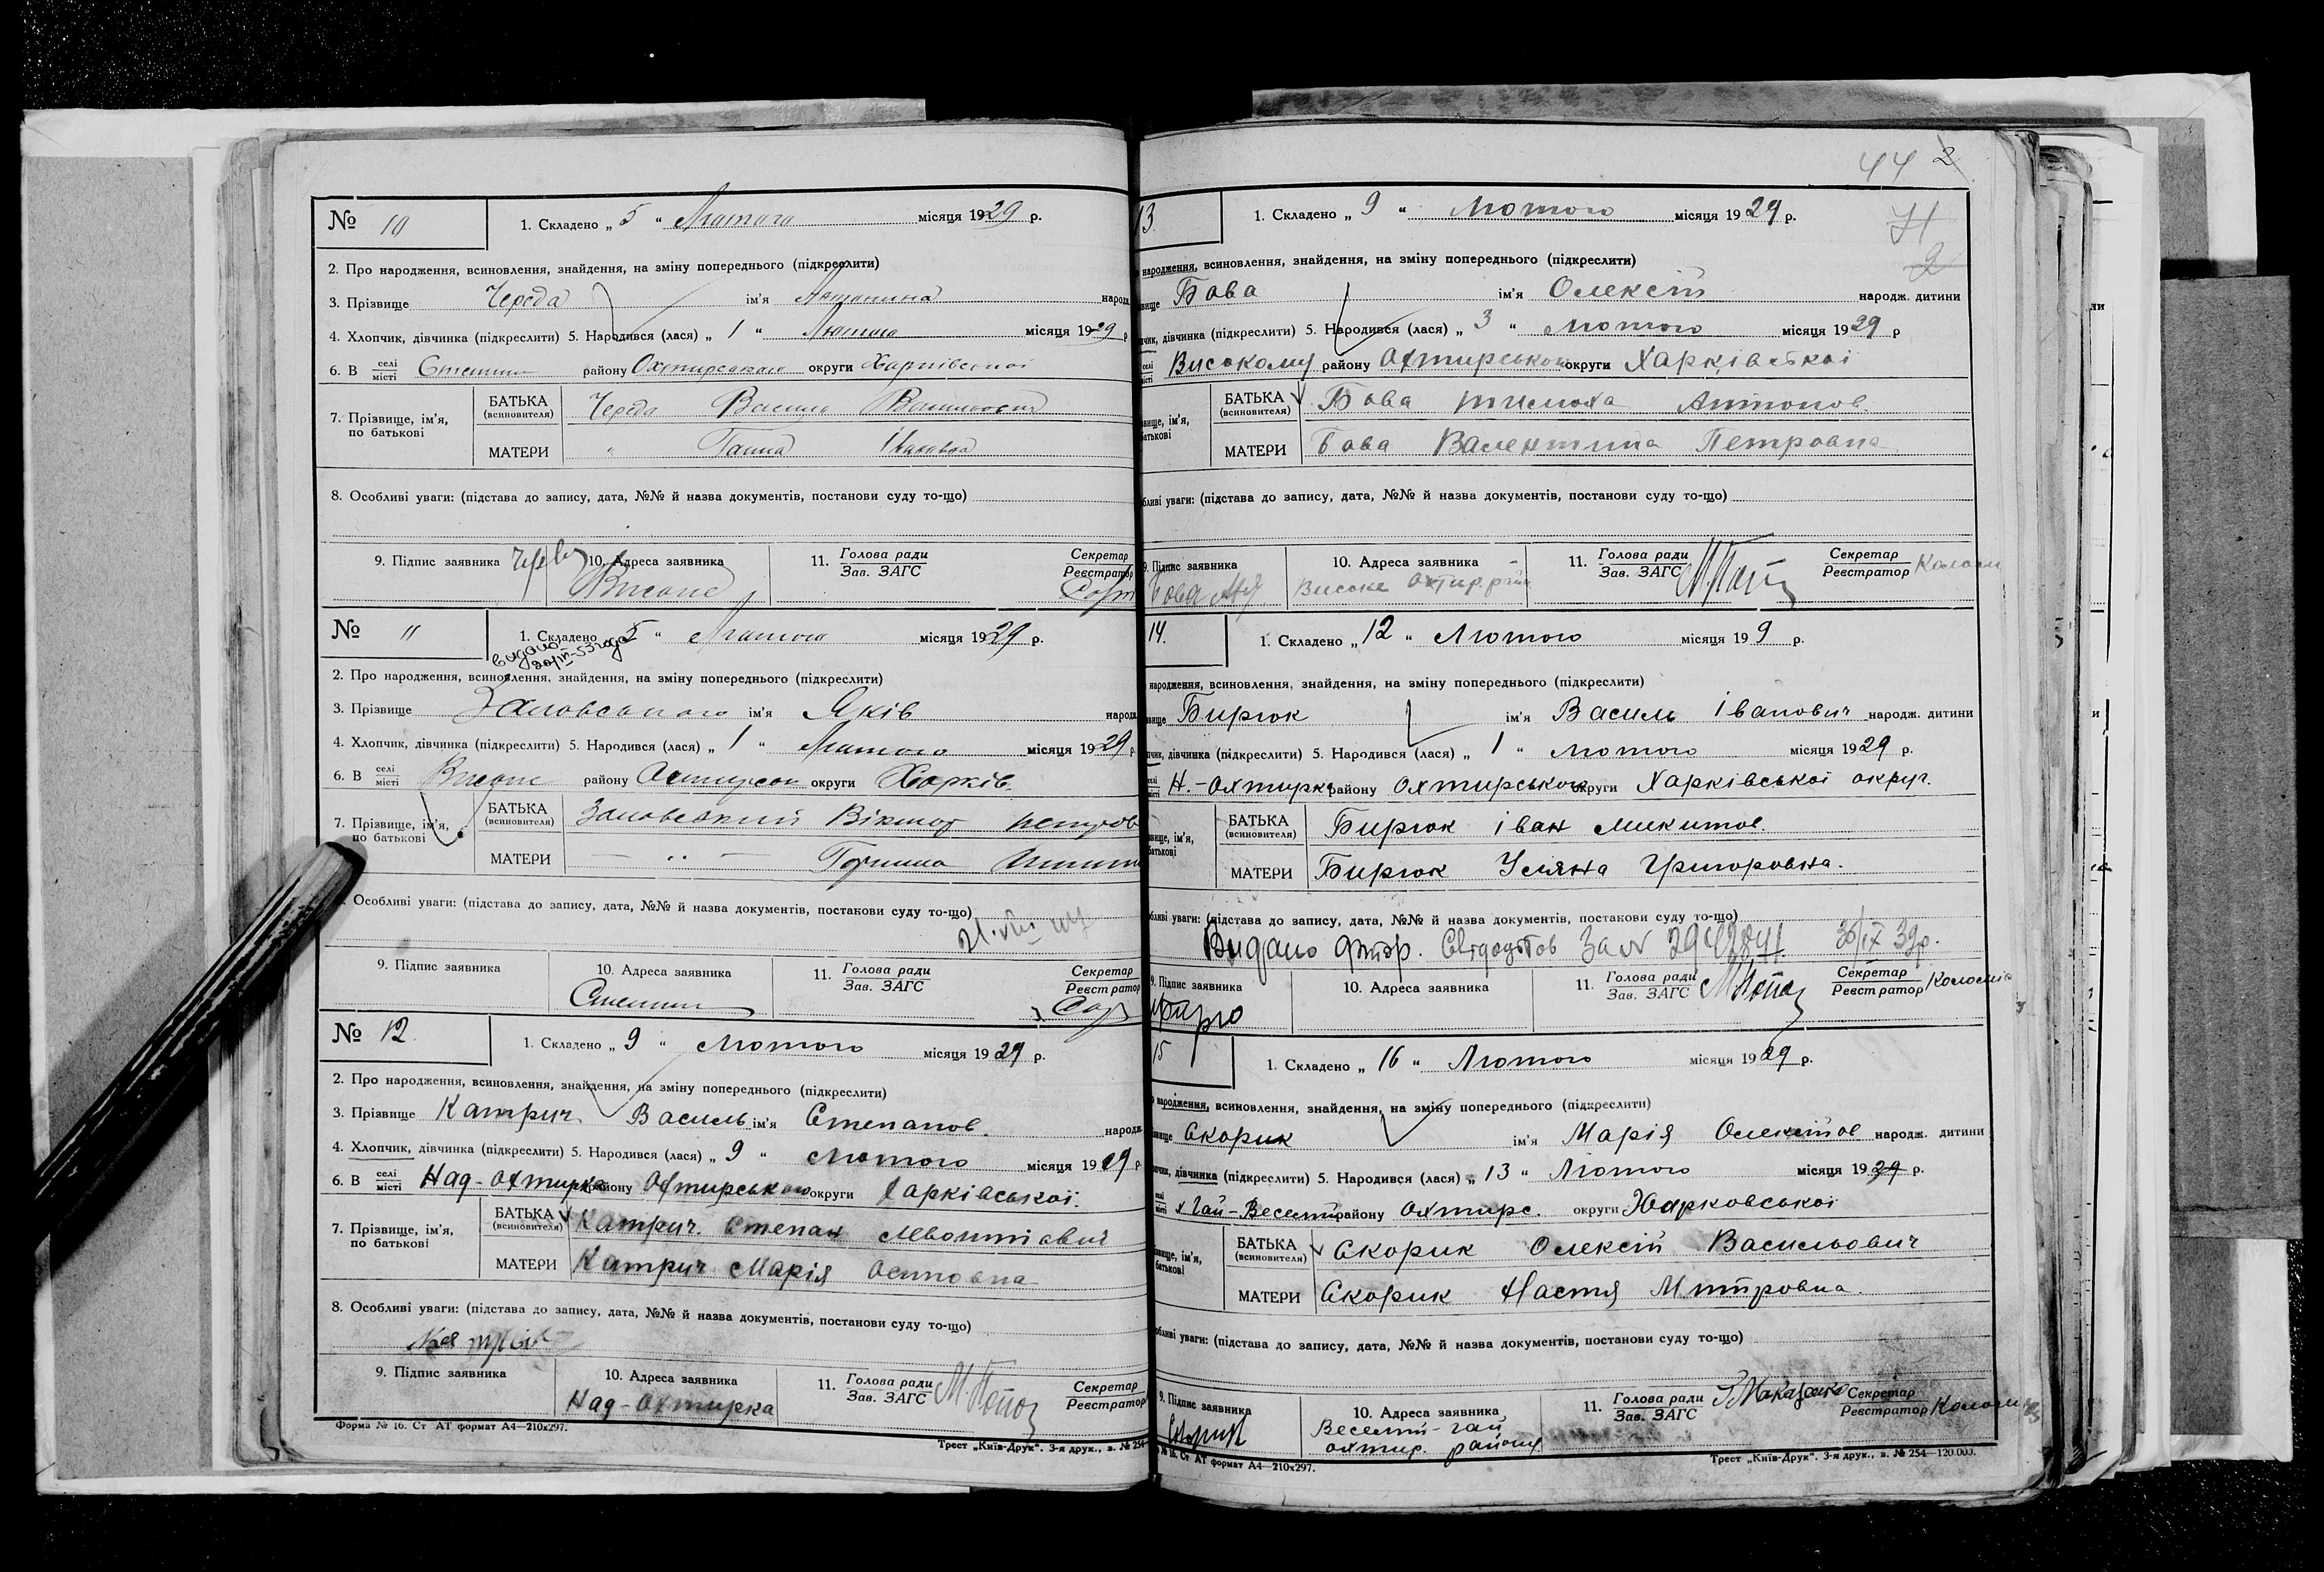 № 10
1. Складено „ 5 “ Лютого місяця 1929 р.
2. Про народження, всиновлення, знайдення, на зміну попереднього (підкреслити)
3. Прізвище Череда ім'я Антонина народж
4. Хлопчик, дівчинка (підкреслити) 5. Народився (лася) „ 1 “ Лютого місяця 1929 р
6. В селі місті району Охтирського округи Харківської
7. Прізвище, ім'я, по батькові
БАТЬКА (всиновителя) Череда Василь Васильович
МАТЕРИ " Ганна
8. Особливі уваги: (підстава до запису, дата, №№ й назва документів, постанови суду то-що)
9. Підпис заявника 10. Адреса заявника 11. Голова ради Зав. ЗАГС Секретар Реєстратор
Високе
№ 11
1. Складено „ 5 “ Лютого місяця 1929 р.
2. Про народження, всиновлення, знайдення, на зміну попереднього (підкреслити)
3. Прізвище ім'я Яків народж
4. Хлопчик, дівчинка (підкреслити) 5. Народився (лася) „ 1 “ Лютого місяця 1929 р.
6. В селі місті Високе району округи Харків.
7. Прізвище, ім'я, по батькові
БАТЬКА (всиновителя) Віктор Петров
МАТЕРИ — " —
Особливі уваги: (підстава до запису, дата, №№ й назва документів, постанови суду то-що)
9. Підпис заявника 10. Адреса заявника 11. Голова ради Зав. ЗАГС Секретар Реєстратор
№ 12.
1. Складено „ 9 “ Лютого місяця 1929 р.
2. Про народження, всиновлення, знайдення, на зміну попереднього (підкреслити)
3. Прізвище Катрич Василь ім'я Степанов. народж
4. Хлопчик, дівчинка (підкреслити) 5. Народився (лася) „ 9 “ Лютого місяця 1929 р.
6. В селі місті Над-Охтирка району Охтирського округи Харківської.
7. Прізвище, ім'я, по батькові
БАТЬКА (всиновителя) Катрич. Степан
МАТЕРИ Катрич Марія Осиповна
8. Особливі уваги: (підстава до запису, дата, №№ й назва документів, постанови суду то-що)
9. Підпис заявника 10. Адреса заявника 11. Голова ради Зав. ЗАГС Секретар Реєстратор
Над-Охтирка
Форма № 16. Ст АТ формат А4—210х297.
Трест „Київ-Друк“. 3-я друк., з. № 254
44 2
13.
1. Складено „ 9 “ Лютого місяця 1929 р.
народження, всиновлення, знайдення, на зміну попереднього (підкреслити)
Бова ім'я Олексій народж. дитини
дівчинка (підкреслити) 5. Народився (лася) „ 3 “ Лютого місяця 1929 р
Високому району Охтирського округи Харківської
БАТЬКА (всиновителя) Бова Тимоха Антонов.
МАТЕРИ Бова Валентина Петровна
уваги: (підстава до запису, дата, №№ й назва документів, постанови суду то-що)
9. Підпис заявника 10. Адреса заявника 11. Голова ради Зав. ЗАГС Секретар Реєстратор
Високе Охтир. район
14.
1. Складено „ 12 “ Лютого місяця 19 9 р.
народження, всиновлення, знайдення, на зміну попереднього (підкреслити)
Бирюк ім'я Василь Іванович народж. дитини
дівчинка (підкреслити) 5. Народився (лася) „ 1 “ Лютого місяця 1929 р.
Н.-Охтирка району Охтирського округи Харківської округ.
БАТЬКА (всиновителя) Бирюк Іван Микитов.
МАТЕРИ Бирюк Уляна Григоровна.
уваги: (підстава до запису, дата, №№ й назва документів, постанови суду то-що)
Видано
9. Підпис заявника 10. Адреса заявника 11. Голова ради Зав. ЗАГС Секретар Реєстратор
15
1. Складено „ 16 “ Лютого місяця 1929 р.
народження, всиновлення, знайдення, на зміну попереднього (підкреслити)
Скорик ім'я Марія Олексійов народж. дитини
дівчинка (підкреслити) 5. Народився (лася) „ 13 “ Лютого місяця 1929 р.
х Гай-Веселий району Охтирс. округи Харковської
БАТЬКА (всиновителя) Скорик Олексій Васильович
МАТЕРИ Скорик Настя Митровна.
уваги: (підстава до запису, дата, №№ й назва документів, постанови суду то-що)
9. Підпис заявника 10. Адреса заявника 11. Голова ради Зав. ЗАГС Секретар Реєстратор
Веселий-Гай
охтир. району
№ 16. Ст АТ формат А4—210х297.
Трест „Київ-Друк“. 3-я друк., з. № 254—120.000.